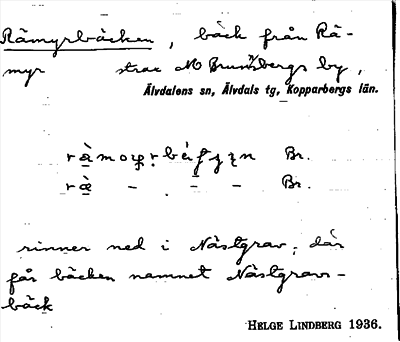 Rämyrbäcken, bäck från Rä-
myr strax N Brunnsbergs by,
Älvdalens sn, Älvdals tg, Kopparbergs län.
Br.
rä̀ - - - Br.
rinner ned i Nästgrav, där
får bäcken namnet Nästgravs-
bäck
HELGE LINDBERG 1936.